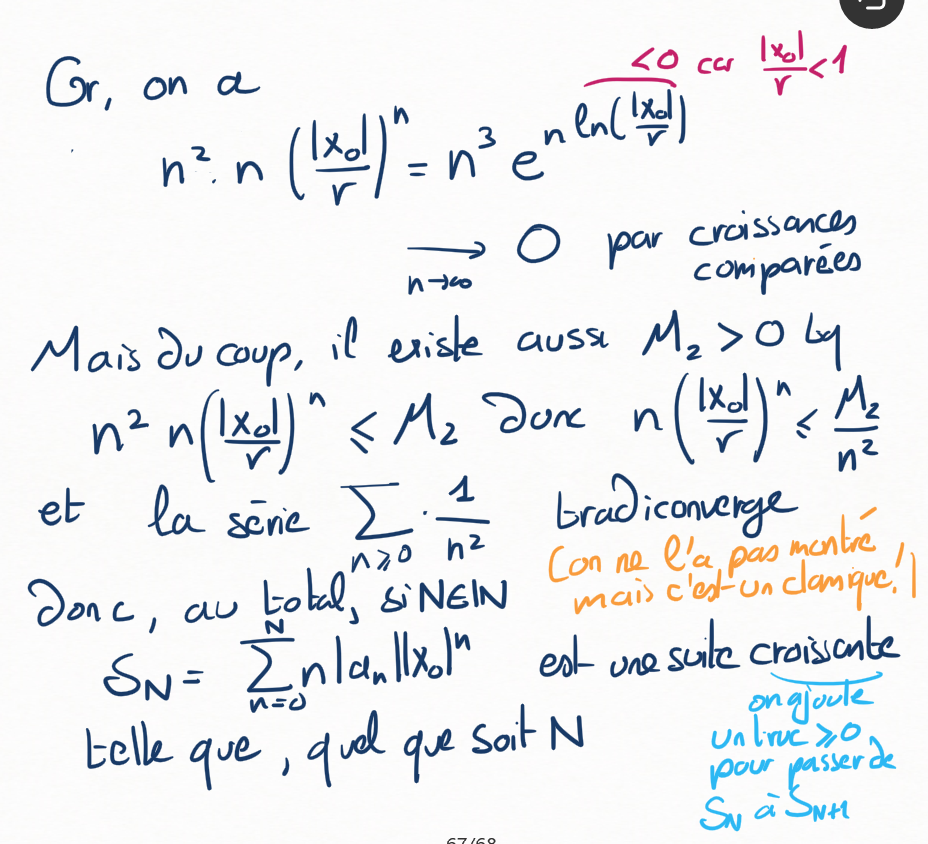 <0 car |x₀|/r <1
Or, on a
n². n (|x₀|/r)ⁿ = n³ e^(n ln(|x₀|/r))
⟶ 0 par croissances
n→∞ comparées
Mais du coup, il existe aussi M₂ > 0 tq
n² n (|x₀|/r)ⁿ ⩽ M₂ donc n (|x₀|/r)ⁿ ⩽ M₂/n²
et la série ∑_(n⩾0) · 1/n² tradiconverge
(on ne l'a pas montré
mais c'est un classique!)
Donc, au total, si N∈ℕ
S_N = ∑_(n=0)^N n |aₙ||x₀|ⁿ est une suite croissante
on ajoute
un truc ⩾0
pour passer de
S_N à S_(N+1)
telle que, quel que soit N
67/68